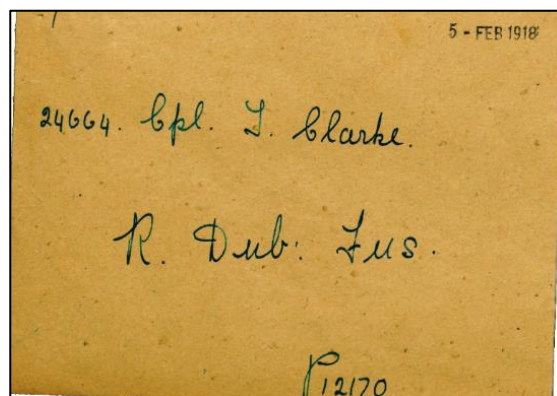 5 - FEB 1918
24664. Cpl. J. Clarke.
R. Dub: Fus.
P12170